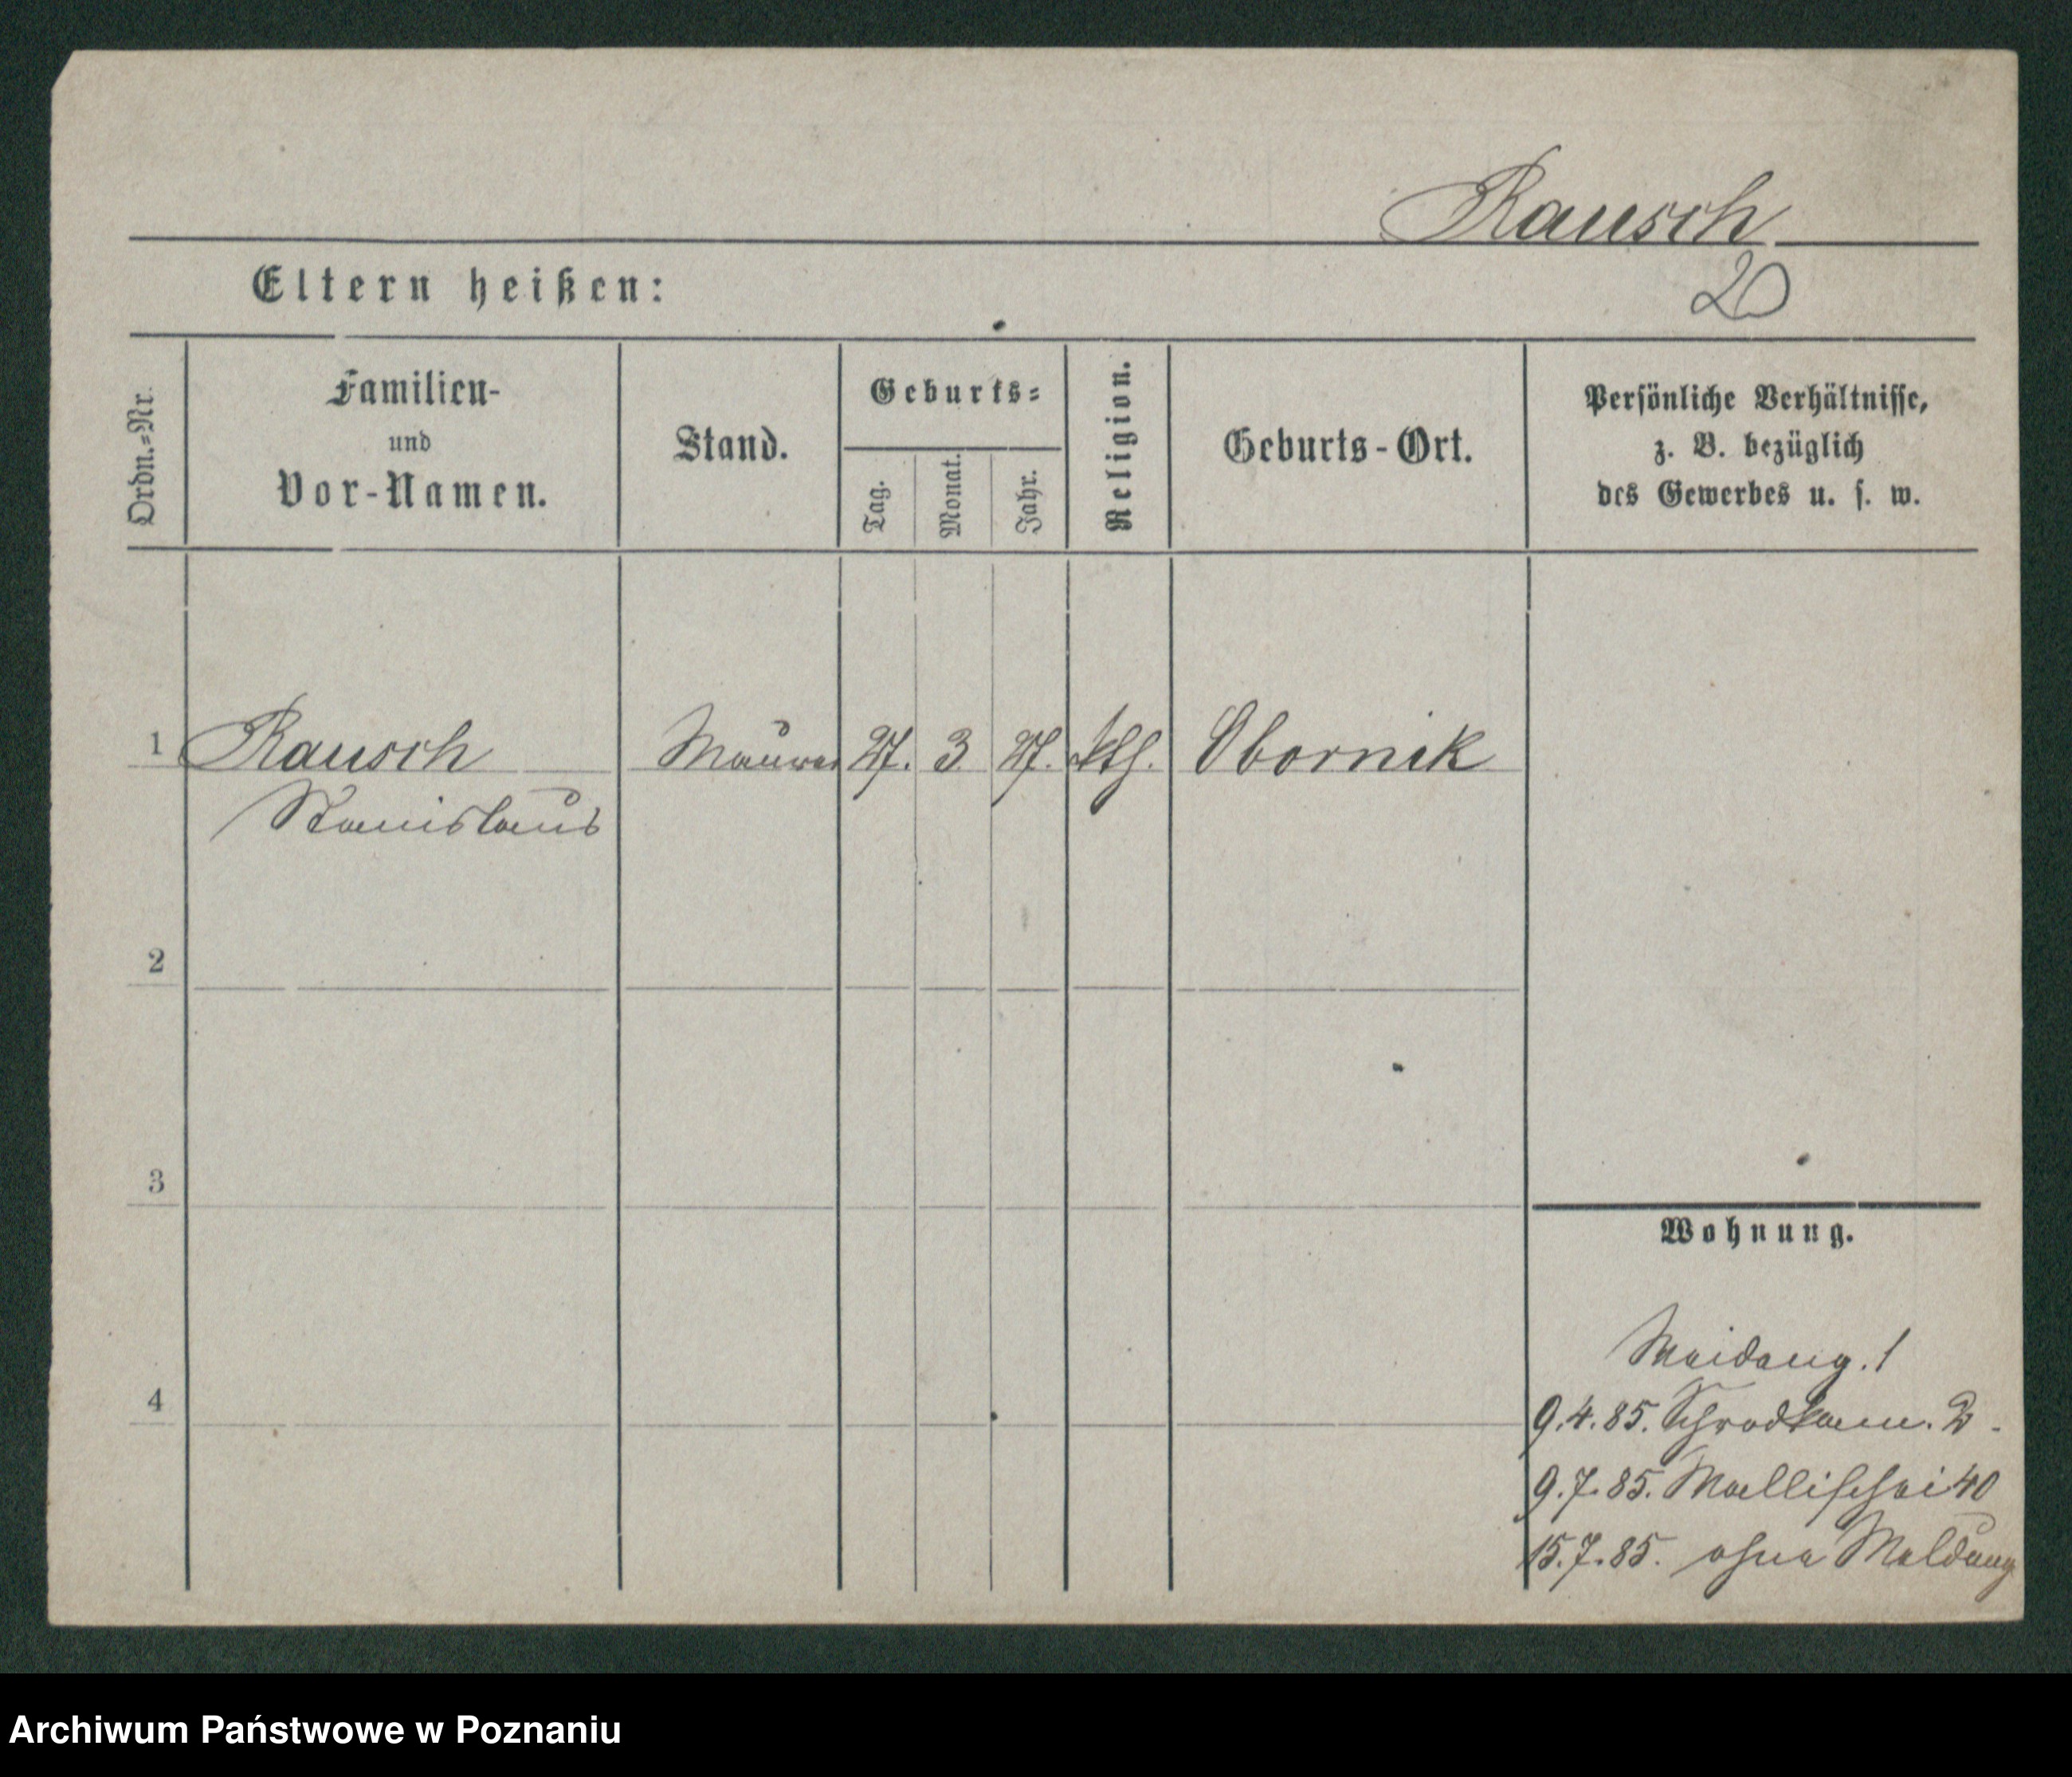 Rausch
20
Eltern heißen:
Ordn.=Nr.
Familien-
und
Vor-Namen.
Stand.
Geburts=
Tag.
Monat.
Jahr.
Religion.
Geburts-Ort.
Persönliche Verhältnisse,
z. B. bezüglich
des Gewerbes u. s. w.
1 Rausch Maurer 27. 3 27. kth. Obornik
Stanislaus
2
3
Wohnung.
4
Maidang. 1
9.4.85. Schrodkam. 2.
9.7.85. Wallischei 40
15.7.85. ohne Meldung
Archiwum Państwowe w Poznaniu